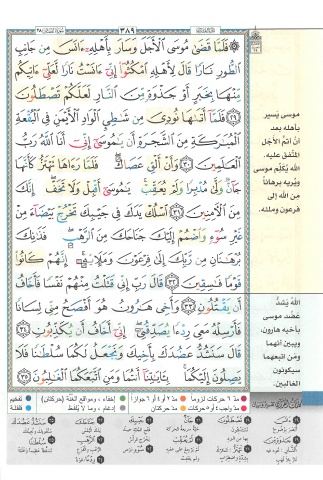 ٣٨٩
فَلَمَّا قَضَىٰ مُوسَى ٱلْأَجَلَ وَسَارَ بِأَهْلِهِۦٓ ءَانَسَ مِن جَانِبِ
ٱلطُّورِ نَارًا قَالَ لِأَهْلِهِ ٱمْكُثُوٓا۟ إِنِّىٓ ءَانَسْتُ نَارًا لَّعَلِّىٓ ءَاتِيكُم
مِّنْهَا بِخَبَرٍ أَوْ جَذْوَةٍ مِّنَ ٱلنَّارِ لَعَلَّكُمْ تَصْطَلُونَ
٢٩ فَلَمَّآ أَتَىٰهَا نُودِىَ مِن شَٰطِئِ ٱلْوَادِ ٱلْأَيْمَنِ فِى ٱلْبُقْعَةِ
ٱلْمُبَٰرَكَةِ مِنَ ٱلشَّجَرَةِ أَن يَٰمُوسَىٰٓ إِنِّىٓ أَنَا ٱللَّهُ رَبُّ
ٱلْعَٰلَمِينَ ٣٠ وَأَنْ أَلْقِ عَصَاكَ فَلَمَّا رَءَاهَا تَهْتَزُّ كَأَنَّهَا
جَآنٌّ وَلَّىٰ مُدْبِرًا وَلَمْ يُعَقِّبْ يَٰمُوسَىٰٓ أَقْبِلْ وَلَا تَخَفْ إِنَّكَ
مِنَ ٱلْءَامِنِينَ ٣١ ٱسْلُكْ يَدَكَ فِى جَيْبِكَ تَخْرُجْ بَيْضَآءَ مِنْ
غَيْرِ سُوٓءٍ وَٱضْمُمْ إِلَيْكَ جَنَاحَكَ مِنَ ٱلرَّهْبِ فَذَٰنِكَ
بُرْهَٰنَانِ مِن رَّبِّكَ إِلَىٰ فِرْعَوْنَ وَمَلَإِي۟هِۦٓ إِنَّهُمْ كَانُوا۟
قَوْمًا فَٰسِقِينَ ٣٢ قَالَ رَبِّ إِنِّى قَتَلْتُ مِنْهُمْ نَفْسًا فَأَخَافُ
أَن يَقْتُلُونِ ٣٣ وَأَخِى هَٰرُونُ هُوَ أَفْصَحُ مِنِّى لِسَانًا
فَأَرْسِلْهُ مَعِىَ رِدْءًا يُصَدِّقُنِىٓ إِنِّىٓ أَخَافُ أَن يُكَذِّبُونِ ٣٤
قَالَ سَنَشُدُّ عَضُدَكَ بِأَخِيكَ وَنَجْعَلُ لَكُمَا سُلْطَٰنًا فَلَا
يَصِلُونَ إِلَيْكُمَا بِـَٔايَٰتِنَآ أَنتُمَا وَمَنِ ٱتَّبَعَكُمَا ٱلْغَٰلِبُونَ ٣٥
موسى يَسير
بأهله بعد
أنْ أتمّ الأجل
المتّفق عليه.
الله يكلّم موسى
ويُريه برهاناً
مِن الله إلى
فرعون وملئه.
الله يَشدُّ
عضد موسى
بأخيه هارون،
ويبين أنهما
ومَن اتبعهما
سيكونون
الغالبين.
مدّ ٦ حركات لزوماً
مدّ ٢ أو ٤ أو ٦ جوازاً
إخفاء، ومواقع الغُنَّة (حركتان)
تفخيم
مدّ واجب ٤ أو ٥ حركات
مدّ حركتان
إدغام، وما لا يُلفَظ
قلقلة